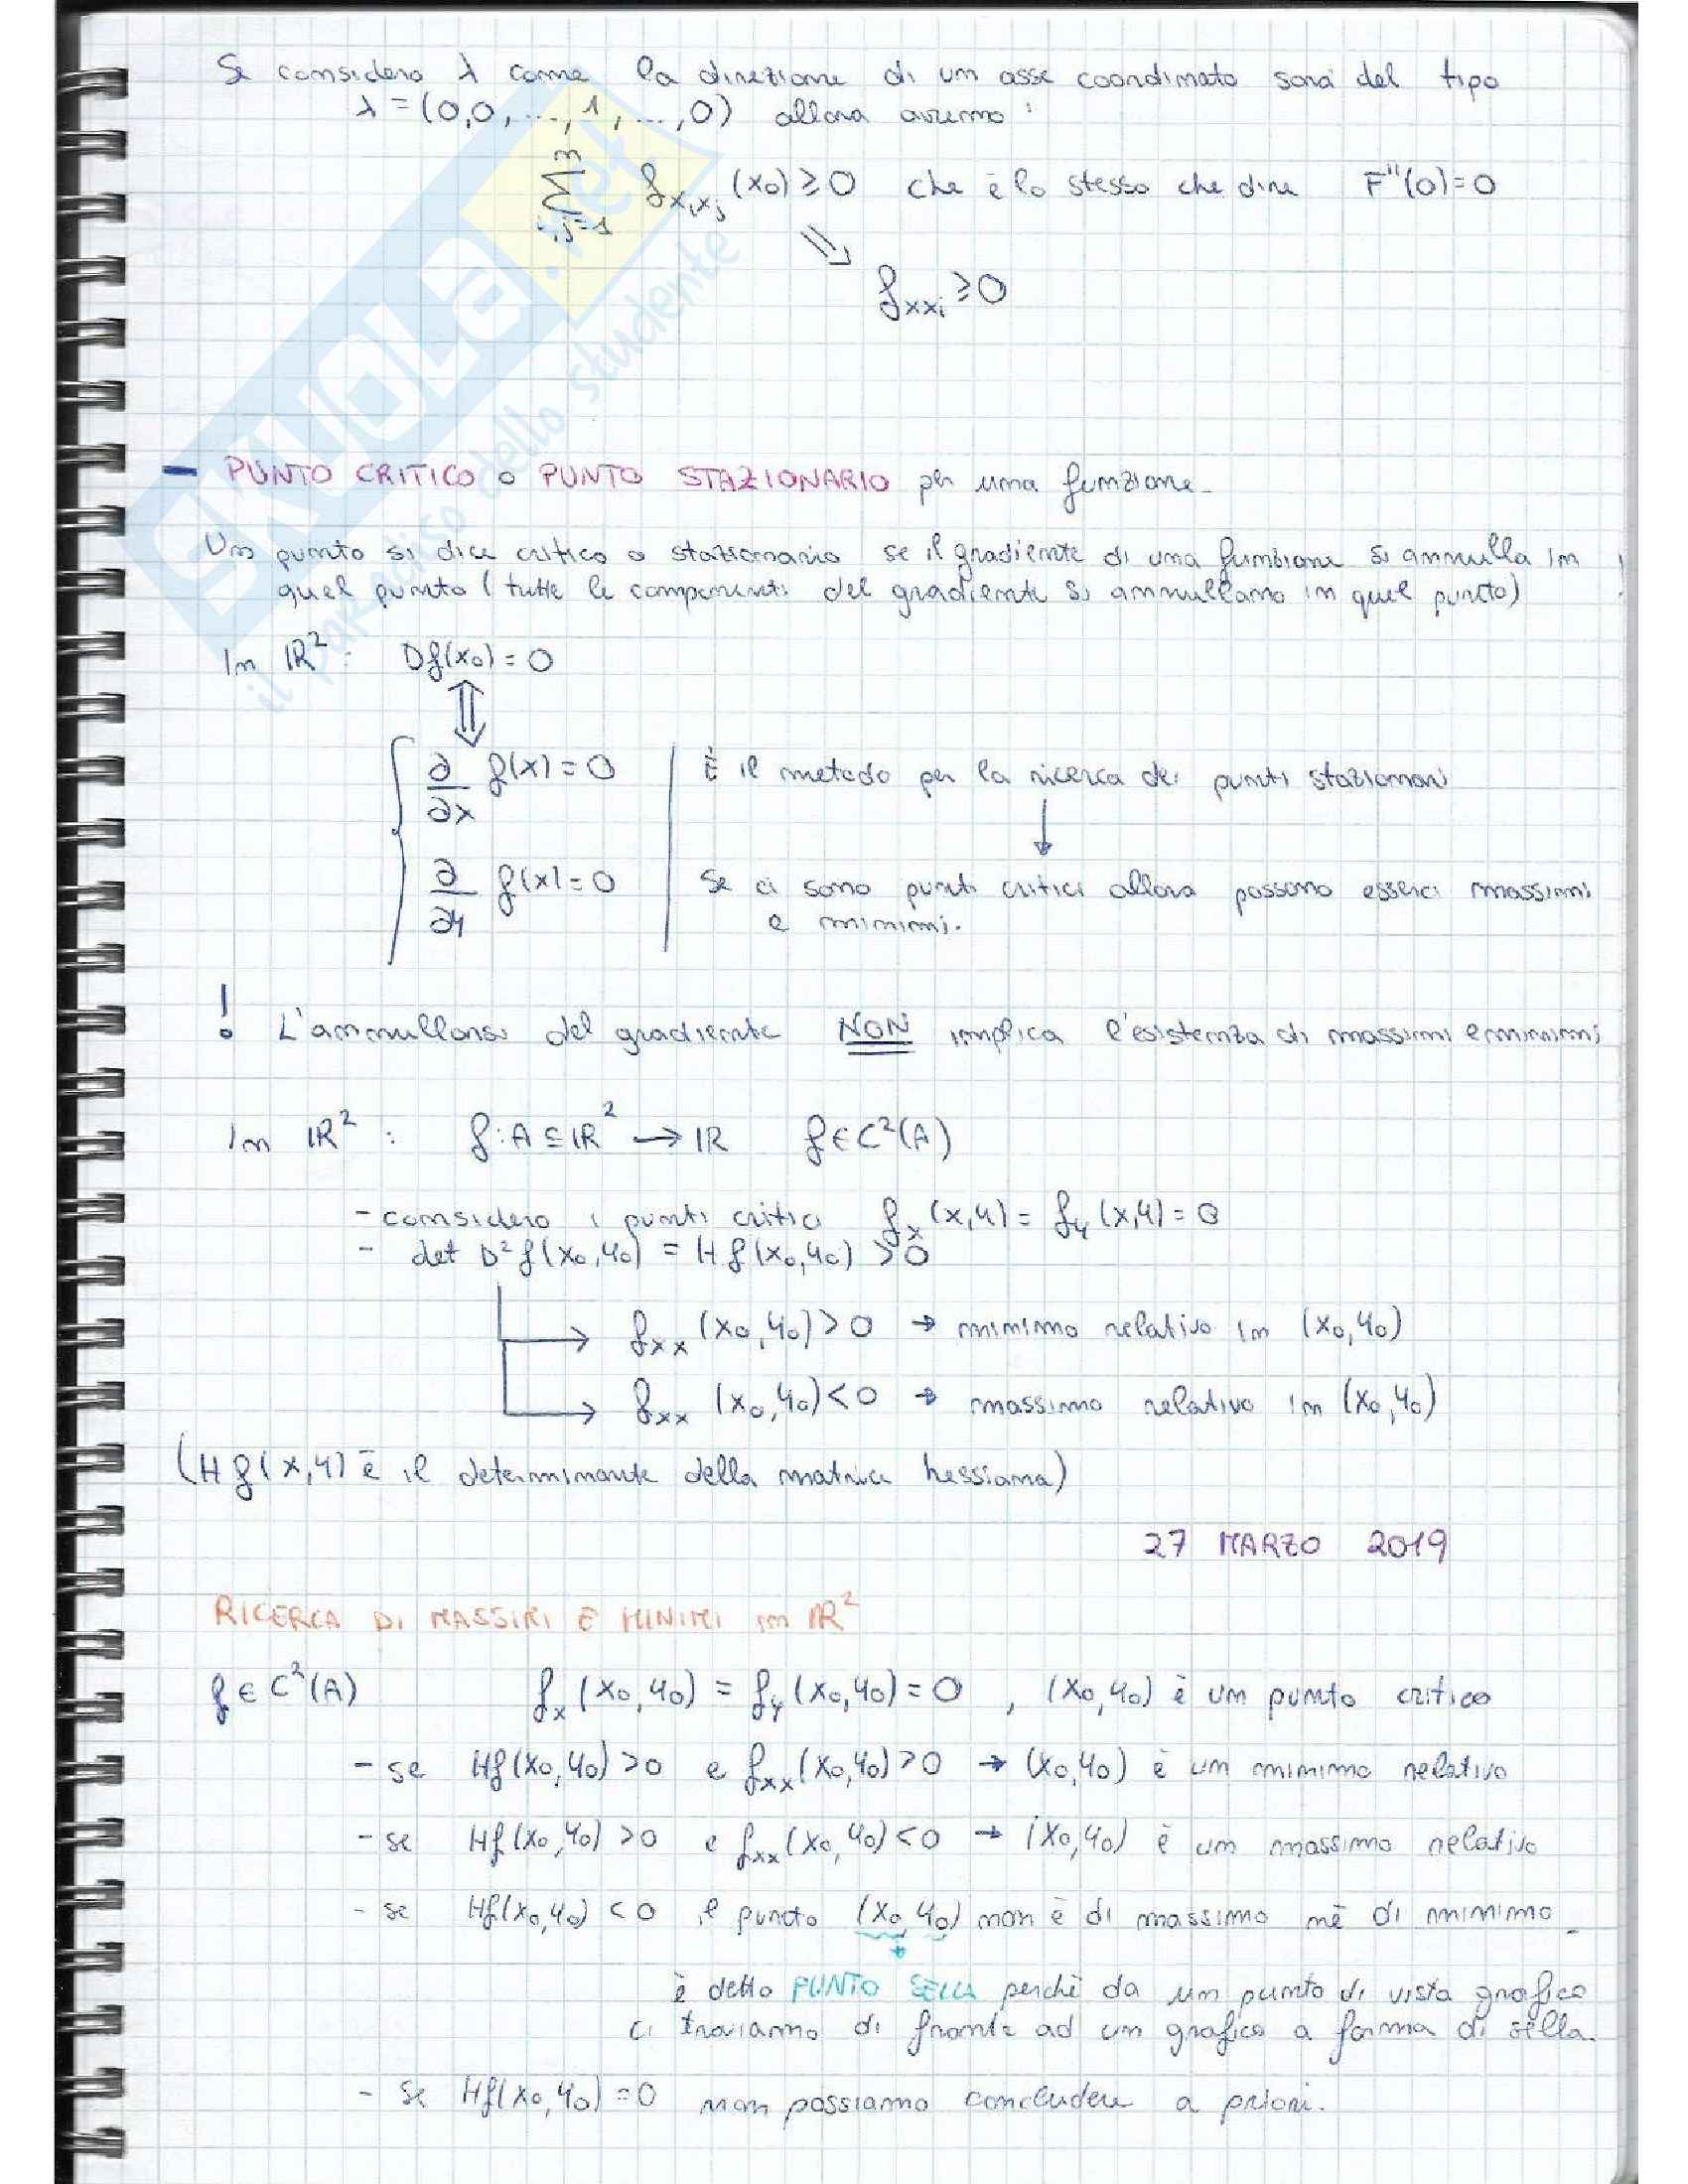 Se considero λ come la direzione di un asse coordinato sarà del tipo
λ = (0,0,...,1,...,0) allora avremo:
m
Σ f_{x_i x_j} (x₀) ≥ 0 che è lo stesso che dire F''(0)=0
i,j=1
⇘
f_{xx_i} ≥ 0
- PUNTO CRITICO o PUNTO STAZIONARIO per una funzione.
Un punto si dice critico o stazionario se il gradiente di una funzione si annulla in !
quel punto (tutte le componenti del gradiente si annullano in quel punto)
In ℝ²: Df(x₀) = 0
⇕
∂/∂x f(x) = 0 È il metodo per la ricerca dei punti stazionari
↓
∂/∂y f(x) = 0 Se ci sono punti critici allora possono esserci massimi
e minimi.
! L'annullarsi del gradiente NON implica l'esistenza di massimi e minimi
In ℝ²: f: A ⊆ ℝ² → ℝ f ∈ C²(A)
- considero i punti critici f_x (x,y) = f_y (x,y) = 0
- det D²f(x₀,y₀) = Hf(x₀,y₀) > 0
→ f_xx (x₀,y₀) > 0 → minimo relativo in (x₀,y₀)
→ f_xx (x₀,y₀) < 0 → massimo relativo in (x₀,y₀)
(Hf(x,y) è il determinante della matrice hessiana)
27 MARZO 2019
RICERCA DI MASSIMI E MINIMI in ℝ²
f ∈ C²(A) f_x (x₀,y₀) = f_y (x₀,y₀) = 0 , (x₀,y₀) è un punto critico
- se Hf(x₀,y₀) > 0 e f_xx (x₀,y₀) > 0 → (x₀,y₀) è un minimo relativo
- se Hf(x₀,y₀) > 0 e f_xx (x₀,y₀) < 0 → (x₀,y₀) è un massimo relativo
- se Hf(x₀,y₀) < 0 il punto (x₀,y₀) non è di massimo nè di minimo
è detto PUNTO SELLA perchè da un punto di vista grafico
ci troviamo di fronte ad un grafico a forma di sella.
- se Hf(x₀,y₀) = 0 non possiamo concludere a priori.
SKUOLA.net
il paradiso dello studente